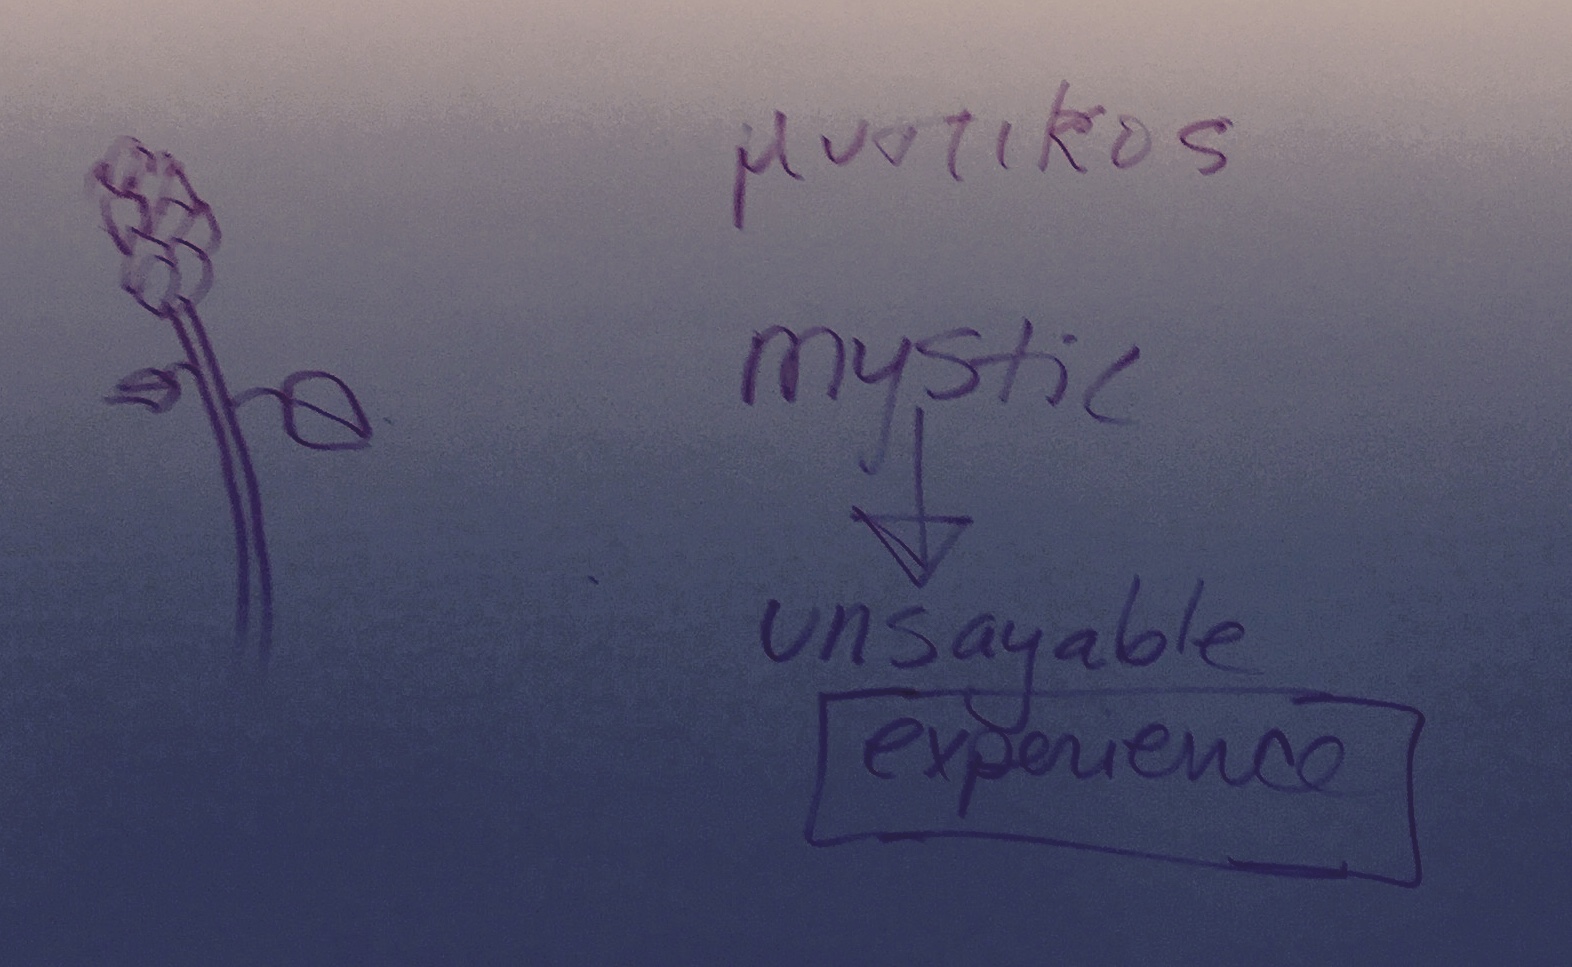 μυστικος
mystic
unsayable
experience